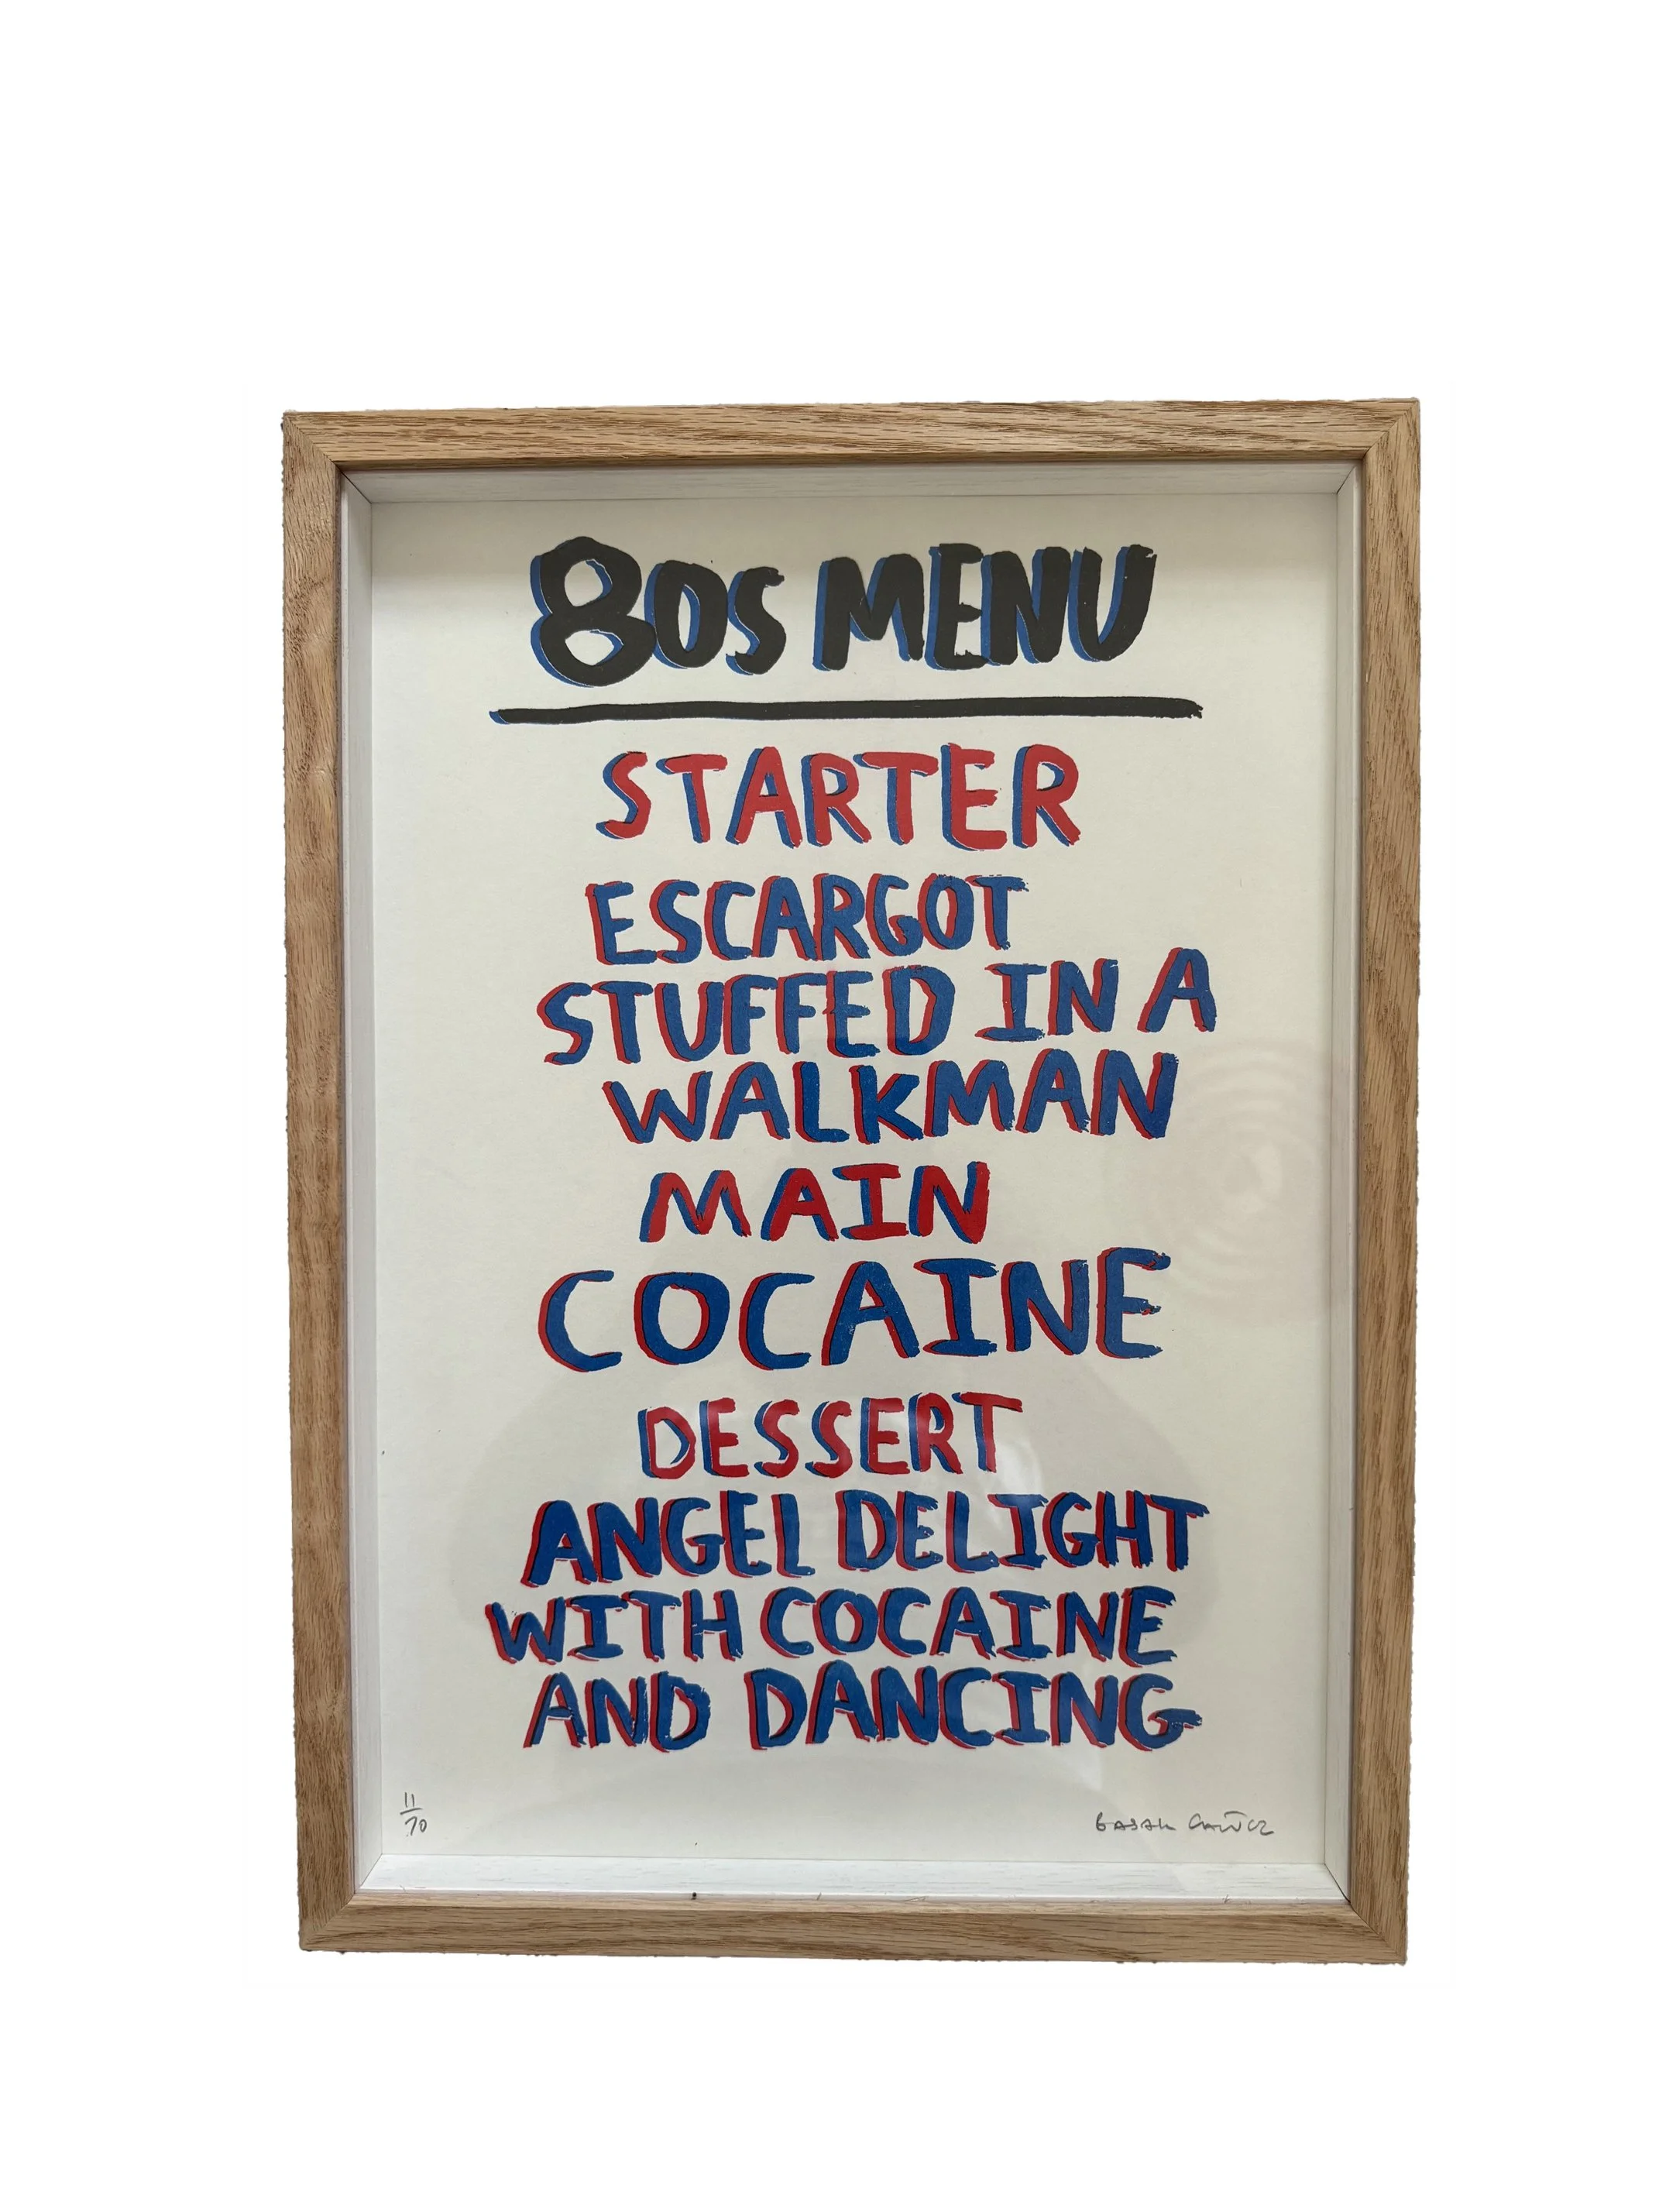 80S MENU
STARTER
ESCARGOT
STUFFED IN A
WALKMAN
MAIN
COCAINE
DESSERT
ANGEL DELIGHT
WITH COCAINE
AND DANCING
11/70